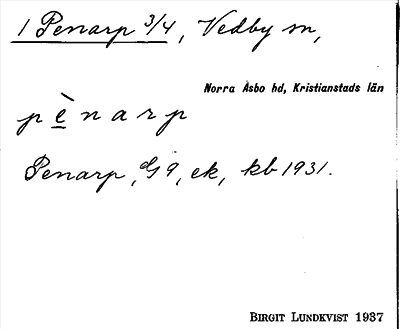 1 Penarp 3/4, Vedby sn,
Norra Åsbo hd, Kristianstads län
pènarp
Penarp, G 9, ek, kb 1931.
BIRGIT LUNDKVIST 1937